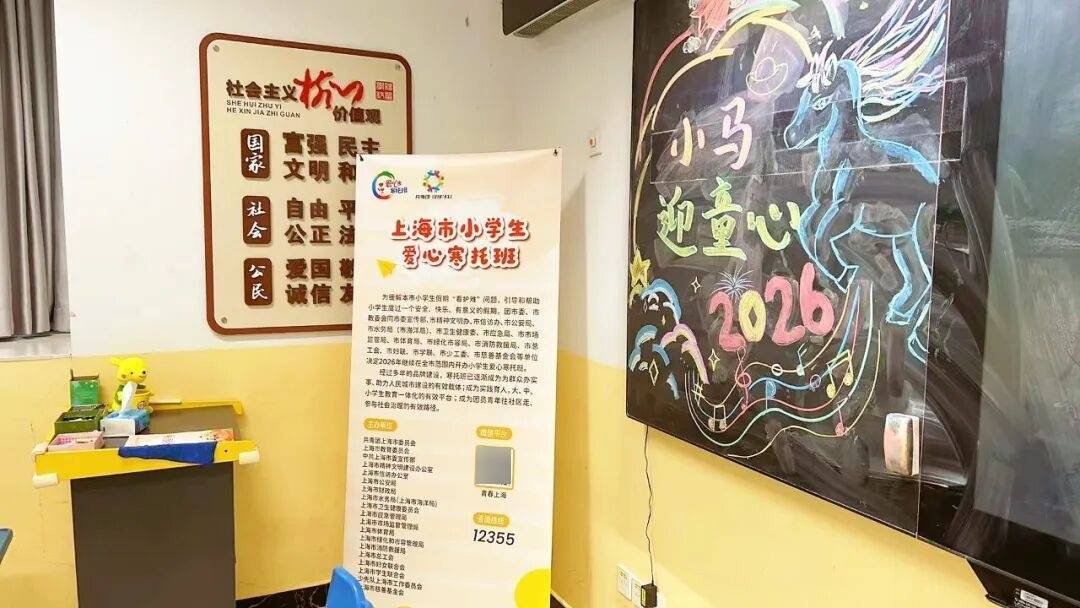 社会主义核心
SHE HUI ZHU YI
HE XIN JIA ZHI GUAN
价值观
国家
富强 民主
文明 和
社会
自由 平
公正 法
公民
爱国 敬
诚信 友
上海市小学生
爱心寒托班
为缓解本市小学生假期“看护难”问题，引导和帮助
小学生度过一个安全、快乐、有意义的假期，团市委、市
教委会同市委宣传部、市精神文明办、市信访办、市公安局、
市水务局（市海洋局）、市卫生健康委、市应急局、市市场
监管局、市体育局、市绿化市容局、市消防救援局、市总
工会、市妇联、市学联、市少工委、市慈善基金会等单位
决定2026年继续在全市范围内开办小学生爱心寒托班。
经过多年的品牌建设，寒托班已逐渐成为为群众办实
事、助力人民城市建设的有效载体；成为实践育人，大、中、
小学生教育一体化的有效平台；成为团员青年往社区走、
参与社会治理的有效路径。
主办单位
共青团上海市委员会
上海市教育委员会
中共上海市委宣传部
上海市精神文明建设办公室
上海市信访办公室
上海市公安局
上海市财政局
上海市水务局（上海市海洋局）
上海市卫生健康委员会
上海市应急管理局
上海市市场监督管理局
上海市体育局
上海市绿化和市容管理局
上海市消防救援局
上海市总工会
上海市妇女联合会
上海市学生联合会
少先队上海市工作委员会
上海市慈善基金会
微信平台
青春上海
咨询热线
12355
小马
迎童心
2026